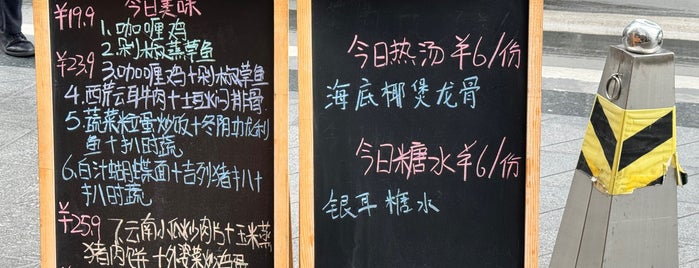 今日美味
¥19.9 1.咖喱鸡
2.剁椒蒸草鱼
¥23.9 3.咖喱鸡+剁椒草鱼
4.西芹云耳牛肉+土豆焖排骨
5.蔬菜粒蛋炒饭+冬阴功龙利
鱼+扒时蔬
6.白汁蝴蝶面+吉列猪扒+
扒时蔬
¥25.9 7云南小瓜炒肉片+玉米蒸
猪肉饼+外婆菜炒鸡蛋
今日热汤¥6/份
海底椰煲龙骨
今日糖水¥6/份
银耳糖水